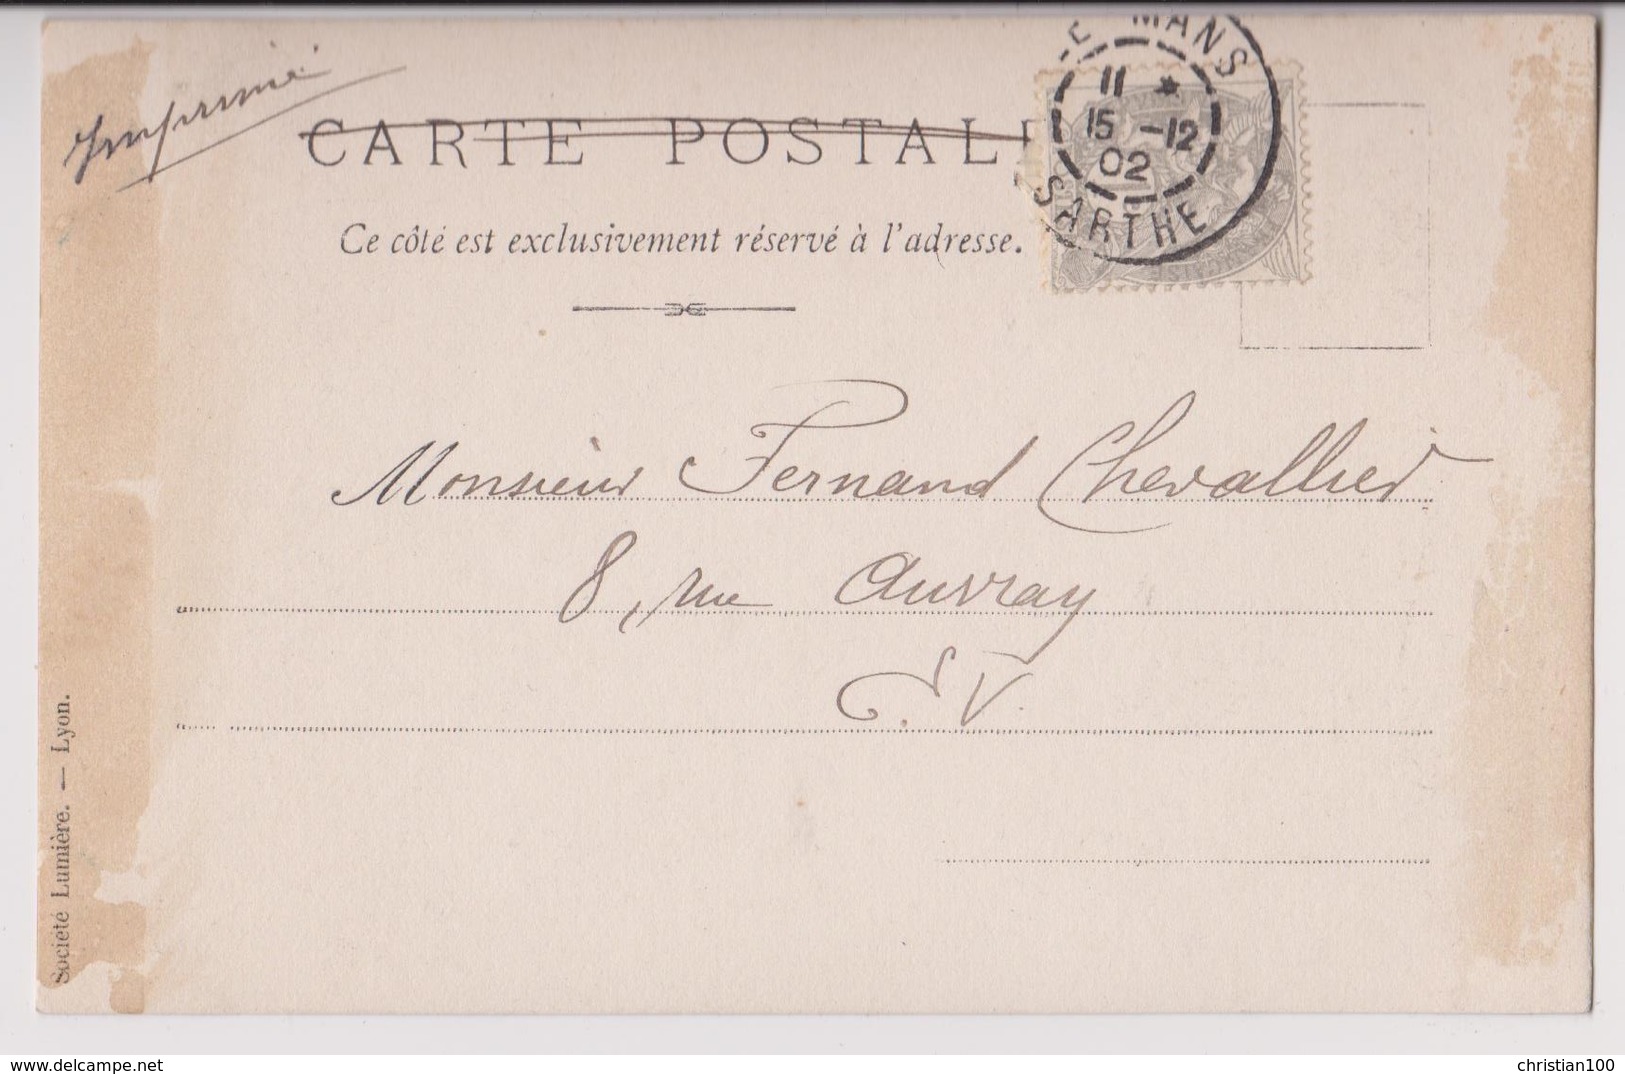 Imprimé
CARTE POSTAL
Ce côté est exclusivement réservé à l'adresse.
LE MANS
11 *
15 -12
02
SARTHE
Monsieur Fernand Chevallier
8, rue Auvray
E.V.
Société Lumière. — Lyon.
delcampe.net
christian100